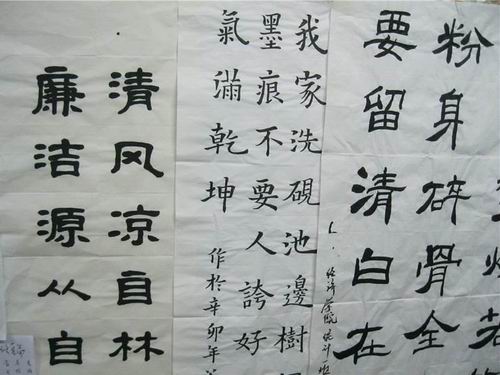 烧若
粉身碎骨全
要留清白在
经济学院统计
我家洗硯池邊樹
墨痕不要人誇好
氣滿乾坤
作於辛卯年
清风凉自林
廉洁源从自